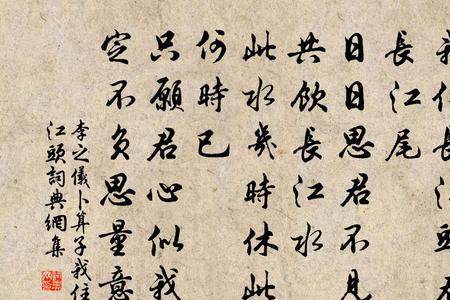 我住長江頭君
長江尾
日日思君不見
共飲長江水
此水幾時休此
何時已
只願君心似我
定不負思量意
李之儀卜算子我住
江頭詞典網集